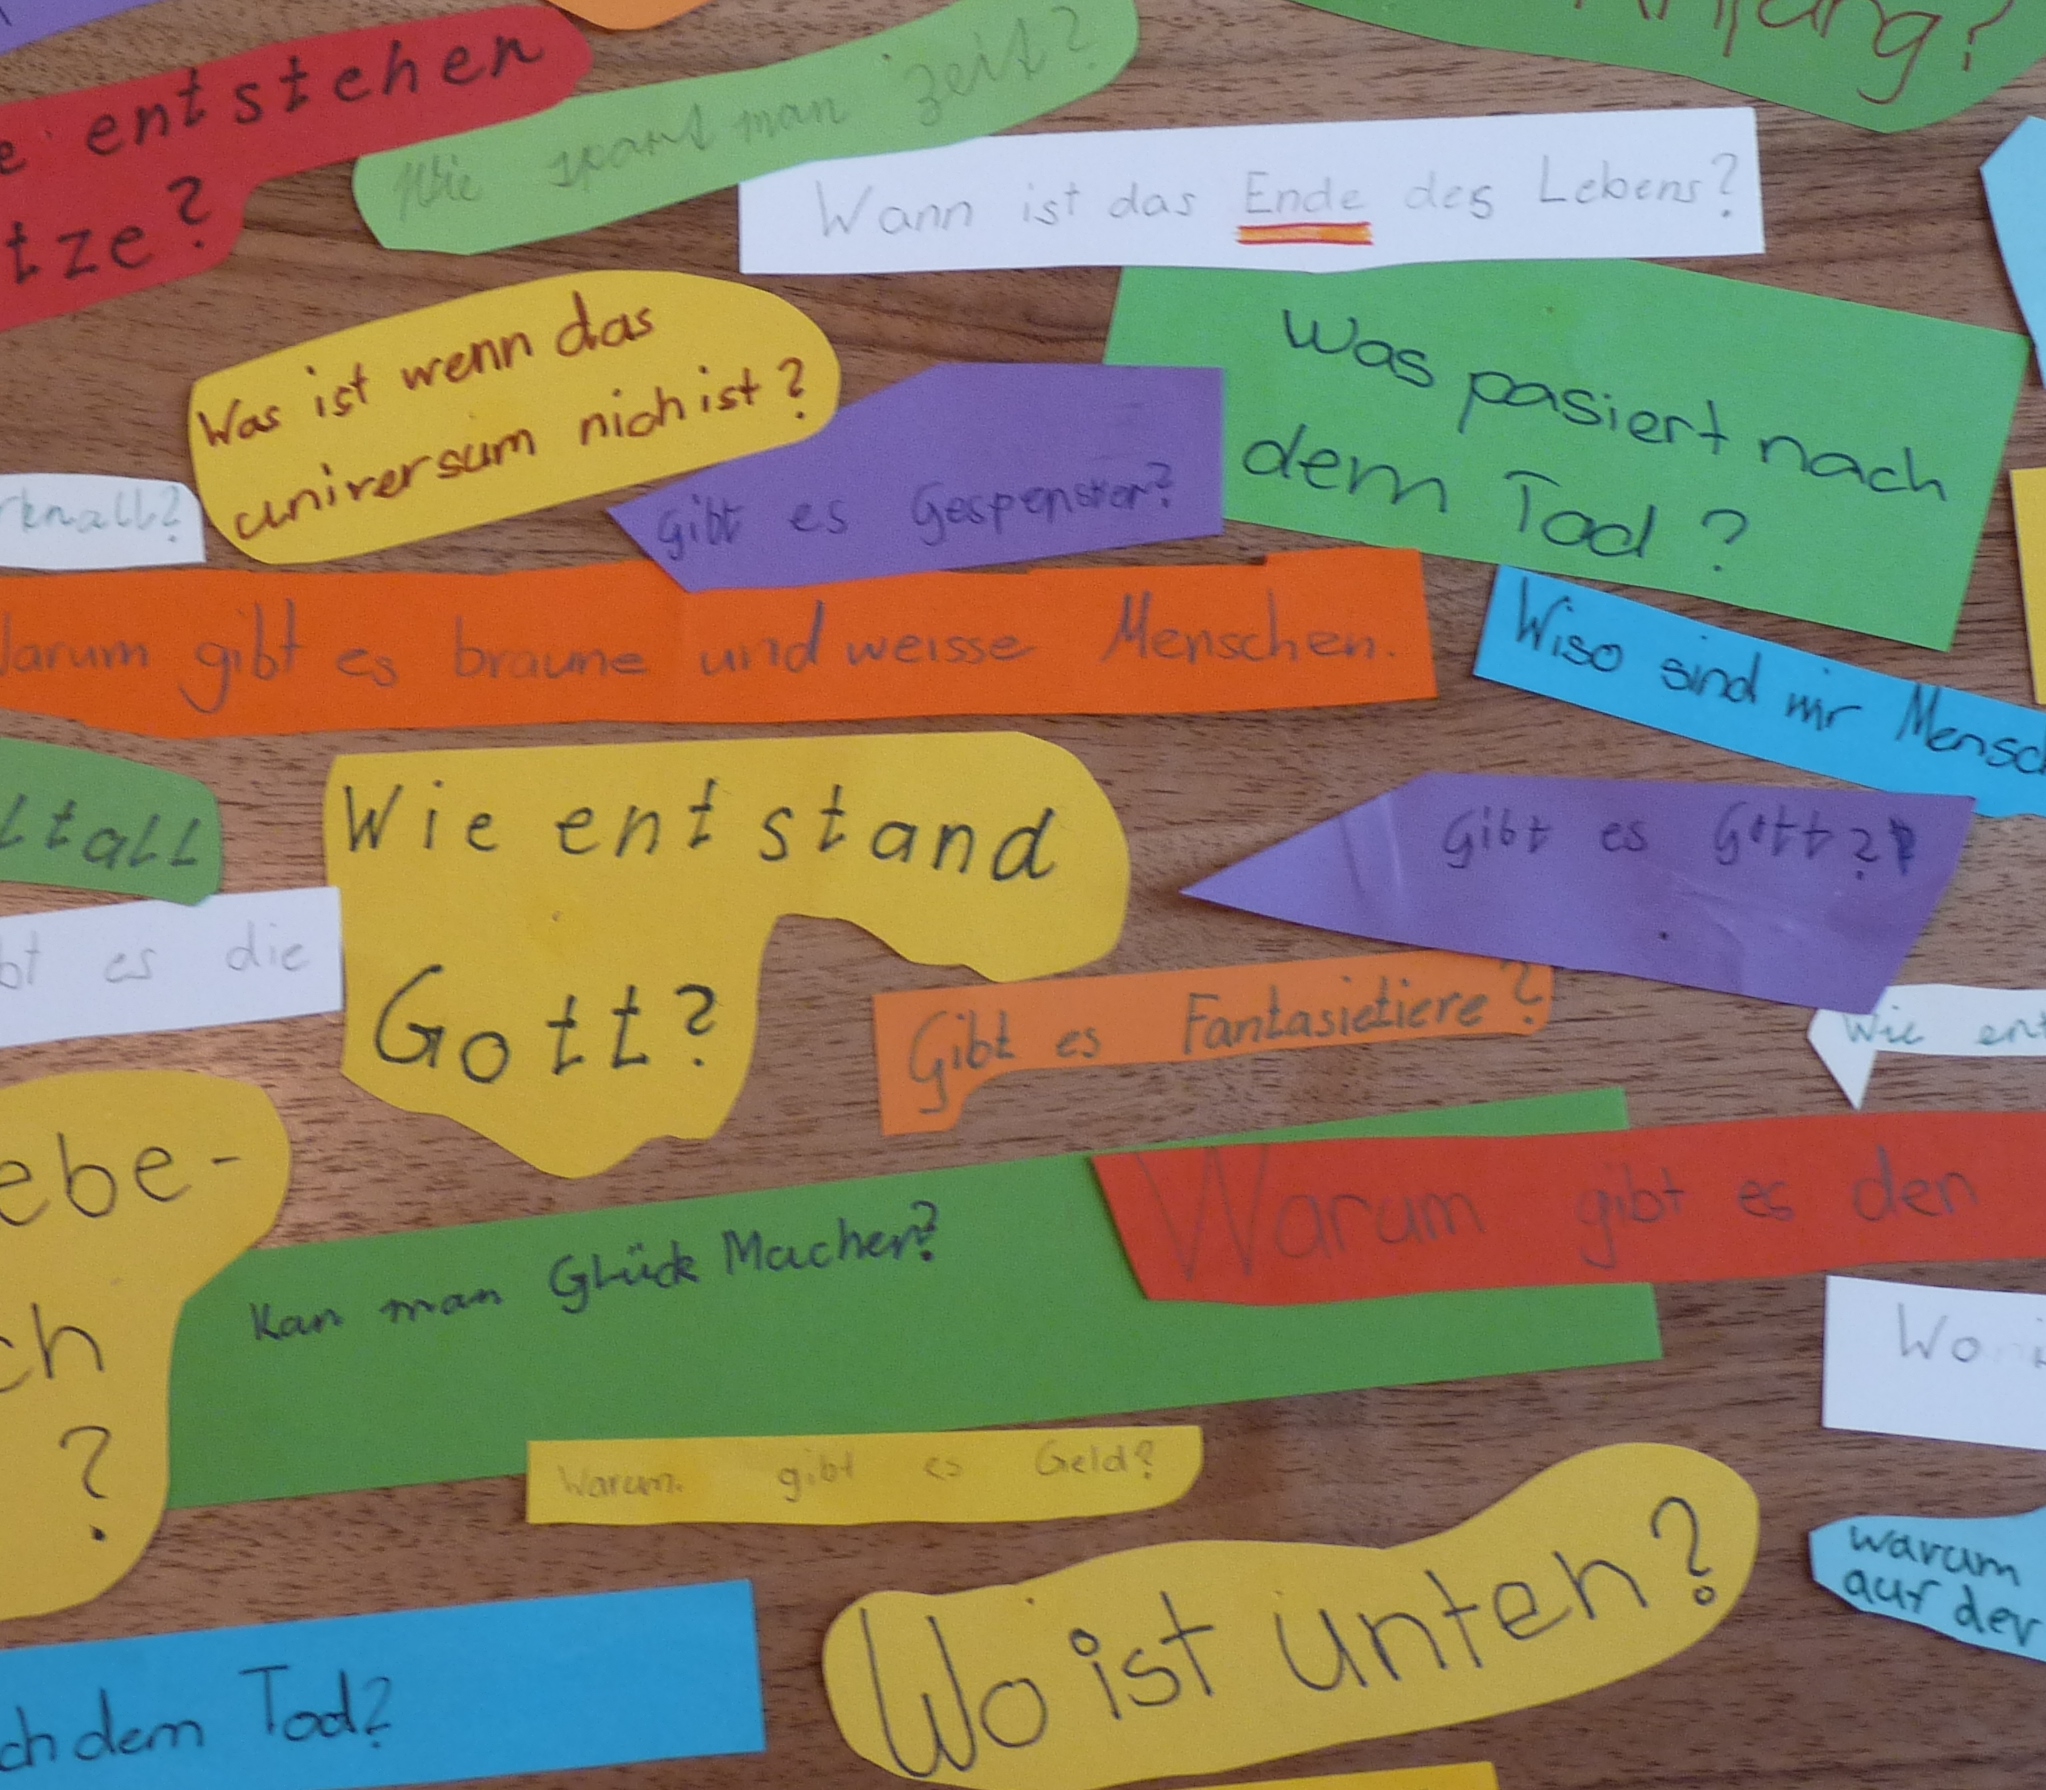 entstehen
tze?
Wie spart man zeit?
Wann ist das Ende des Lebens?
Was ist wenn das
universum nich ist?
gibt es Gespenster?
Was pasiert nach
dem Tod?
knall?
arum gibt es braune und weisse Menschen.
Wiso sind mir Mensch
ltall
Wie entstand
Gott?
gibt es Gott??
bt es die
Gibt es Fantasietiere?
Wie ent
ebe-
ch
?
Kan man Glück Machen?
Warum gibt es den
Wo
Warum gibt es Geld?
Wo ist unten?
warum
auf der
ch dem Tod?